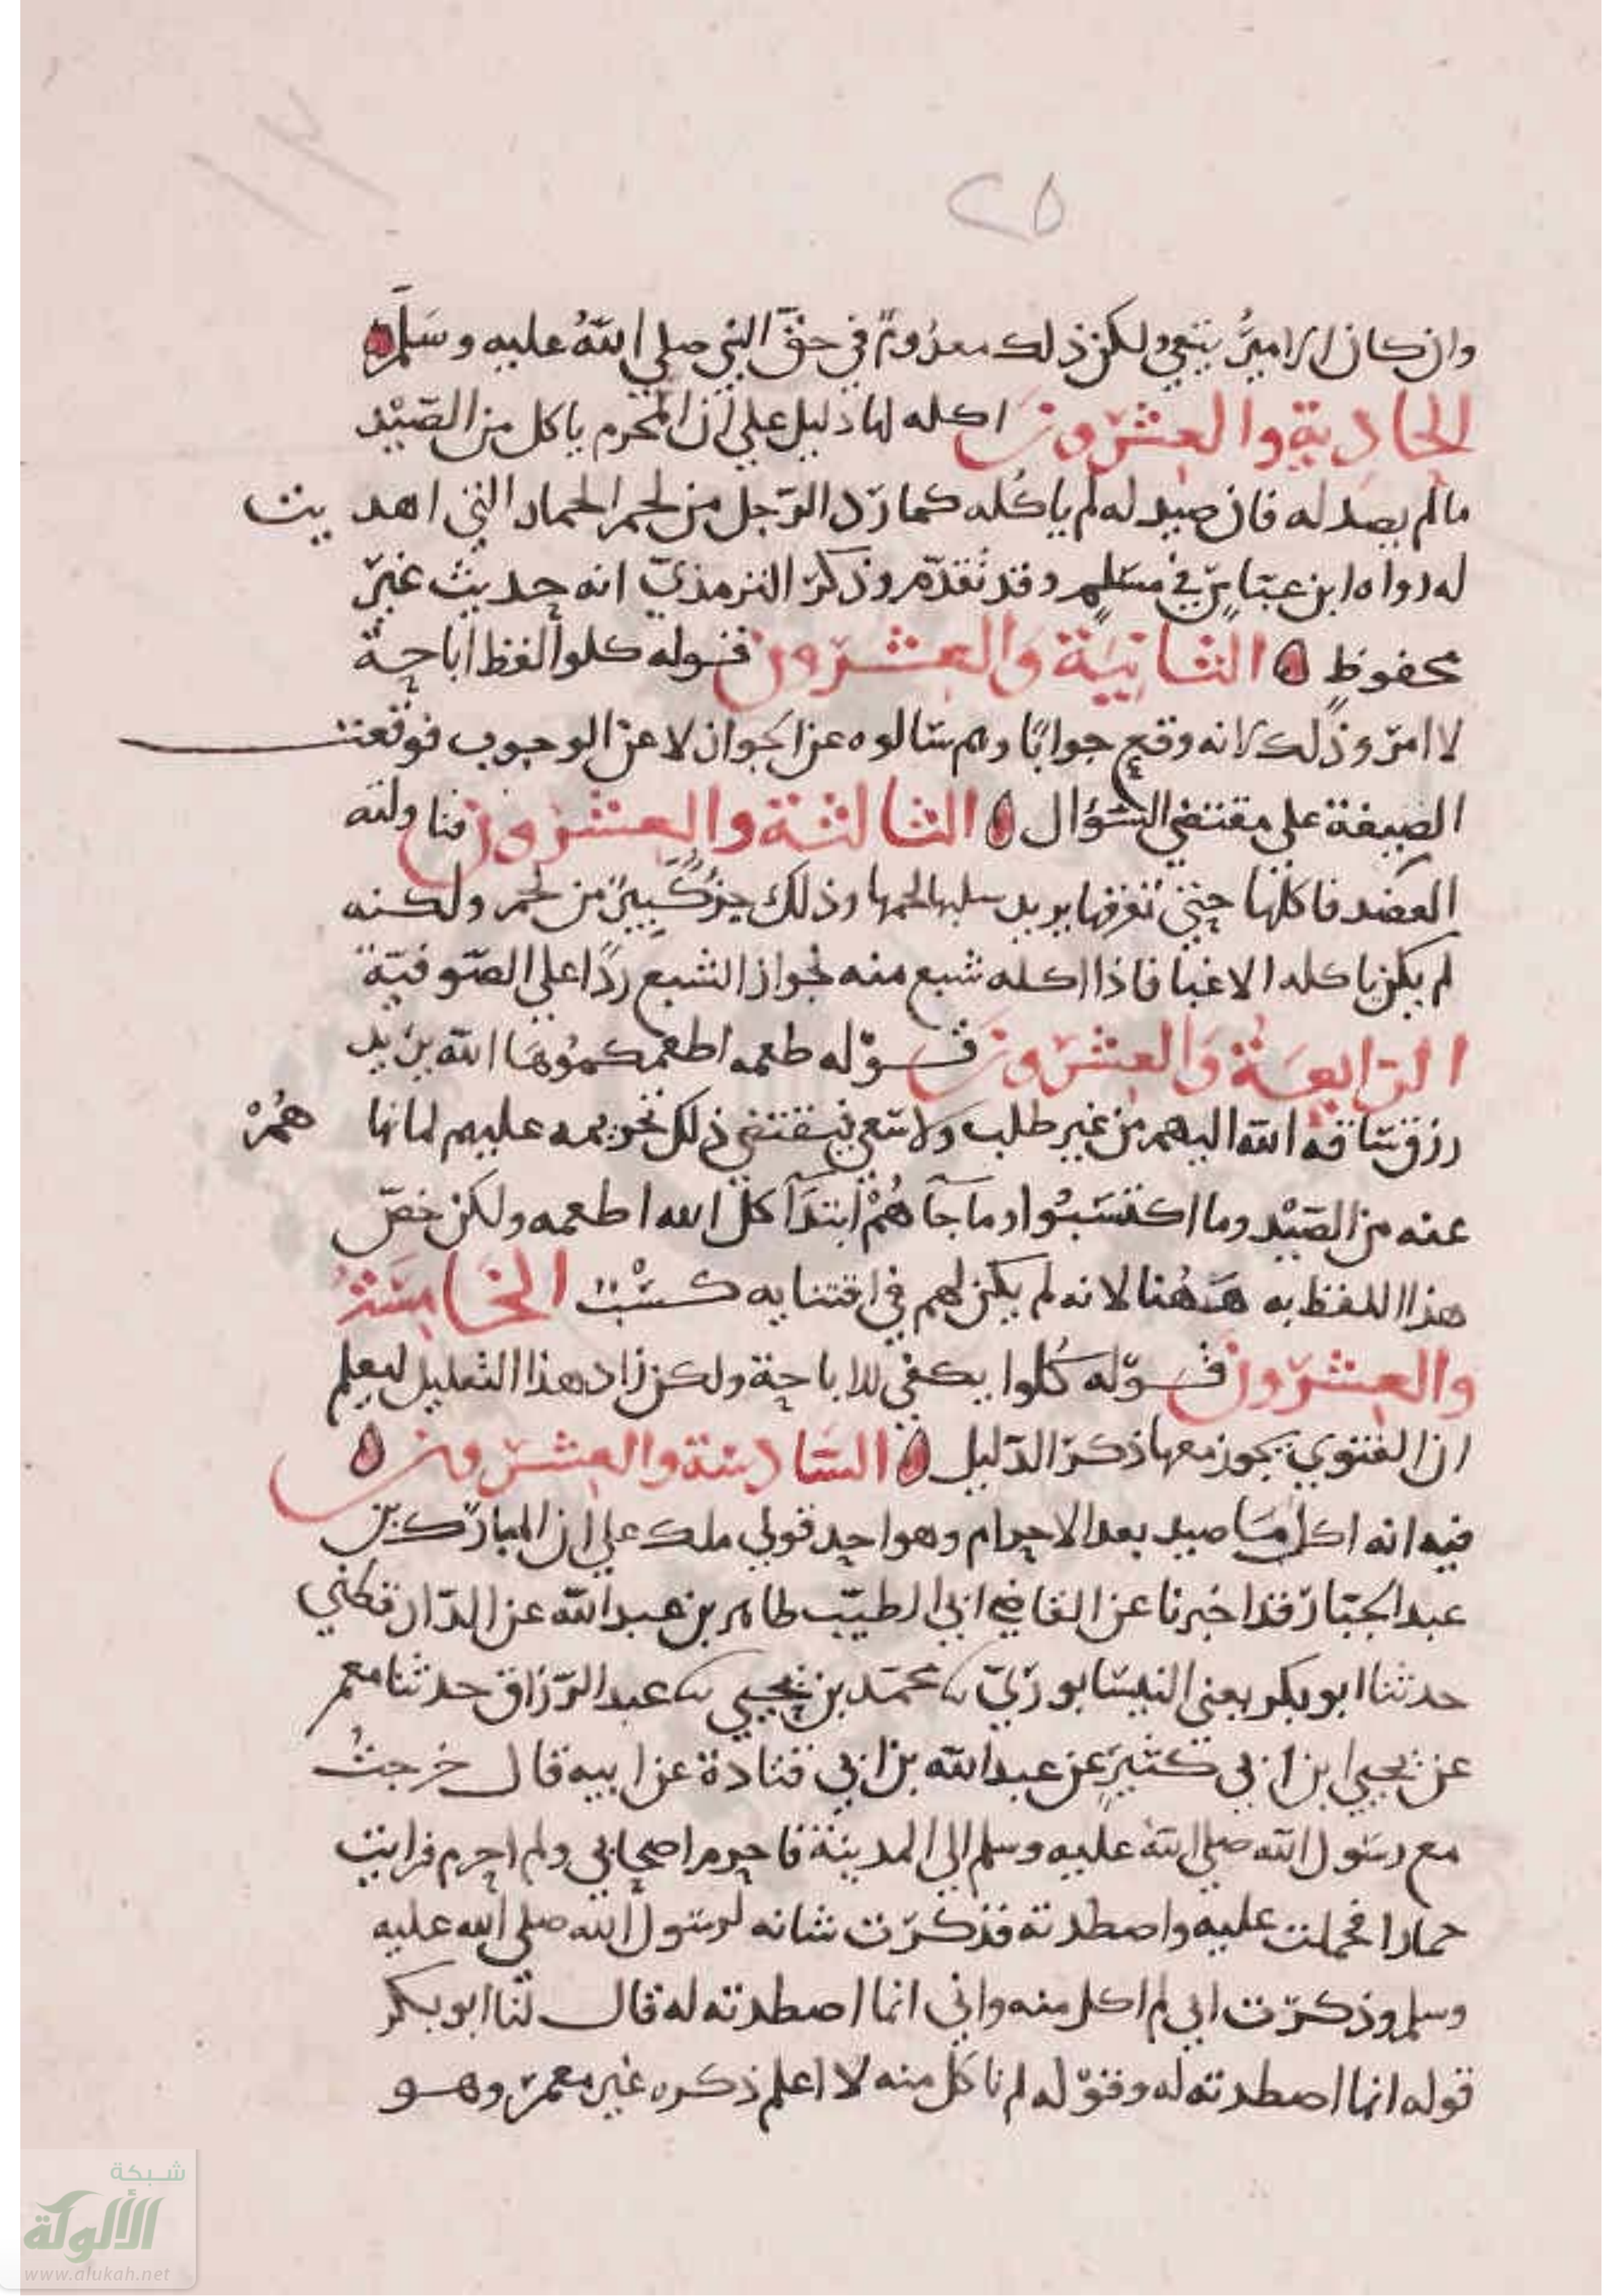 ٢٥
وان كان الرامي يتقي ولكن ذلك معدوم في حق النبي صلي الله عليه وسلم
الحادية والعشرون اكله لها دليل علي ان المحرم ياكل من الصيد
مالم يصد له فان صيد له لم ياكله كما رد الرجل من لحم الحمار التي اهديت
له رواه ابن عباس في مسلم وقد تقدم وذكر الترمذي انه حديث غير
محفوظ الثانية والعشرون فقوله كلوا لفظ اباحة
لا امر وذلك لانه وقع جوابا وهم سالوه عن الجواز لا عن الوجوب فوقعت
الصيغة علي مقتضي السؤال الثالثة والعشرون فناولته
العضد فاكلها حتي تعرقها يريد سلبها لحمها وذلك جزء كبير من لحم ولكنه
لم يكن ياكله الا غبا فاذا اكله شبع منه لجواز الشبع ردا علي الصوفية
الرابعة والعشرون قوله طعمه اطعمكموها الله يريد
رزق ساقه الله اليهم من غير طلب ولا سعي فيقتضي ذلك تحريمه عليهم لما نهاهم
عنه من الصيد وما اكتسبوا وما جآهم ابتدآ كل الله اطعمه ولكن خص
هذا اللفظ به ههنا لانه لم يكن لهم في اقتنايه كسب الخامسة
والعشرون قوله كلوا يكفي للاباحة ولكن زاد هذا التعليل ليعلم
ان الفتوي يجوز معها ذكر الدليل السادسة والعشرون
فيه انه اكل ما صيد بعد الاحرام وهو احد قولي ملك علي ان المبارك بن
عبد الجبار قد اخبرنا عن القاضي ابي الطيب طاهر بن عبد الله عن الدارقطني
حدثنا ابو بكر يعني النيسابوري نا محمد بن يحيي نا عبد الرزاق حدثنا معمر
عن يحيي ابن ابي كثير عن عبد الله بن ابي قتادة عن ابيه قال خرجت
مع رسول الله صلي الله عليه وسلم الي المدينة فاحرم اصحابي ولم احرم فرايت
حمارا فحملت عليه واصطدته فذكرت شانه لرسول الله صلي الله عليه
وسلم وذكرت اني لم اكل منه واني انما اصطدته له قال لنا ابو بكر
قوله انما اصطدته له وقوله لم ناكل منه لا اعلم ذكره غير معمر وهو
شبكة
الألوكة
www.alukah.net